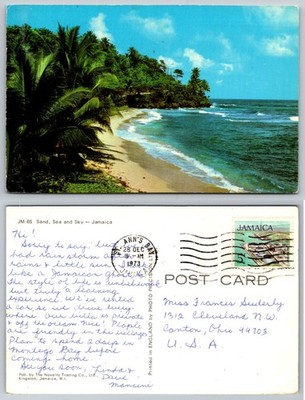 JM 66 Sand, Sea and Sky — Jamaica
Hi!
Sorry to say, 
bad rain storm
rains & little sun
like a Jamaican
The style of life is
but truly a
experience. We've rented
a car so we drive
where. Our villa is private
& off "season now." People
are friendly in the village.
Plan to spend 2 days in
Montego Bay before
coming home.
See you soon, Linda &
Dave
Pub. by The Novelty Trading Co., Ltd.
Kingston, Jamaica, W.I.
PRINTED IN ENGLAND BY PHOTO
ST. ANN'S BAY
28 DEC
1973
JAMAICA
5
POST CARD
Miss Frances
1312 Cleveland N.W.
Canton, Ohio 44703
U.S.A.